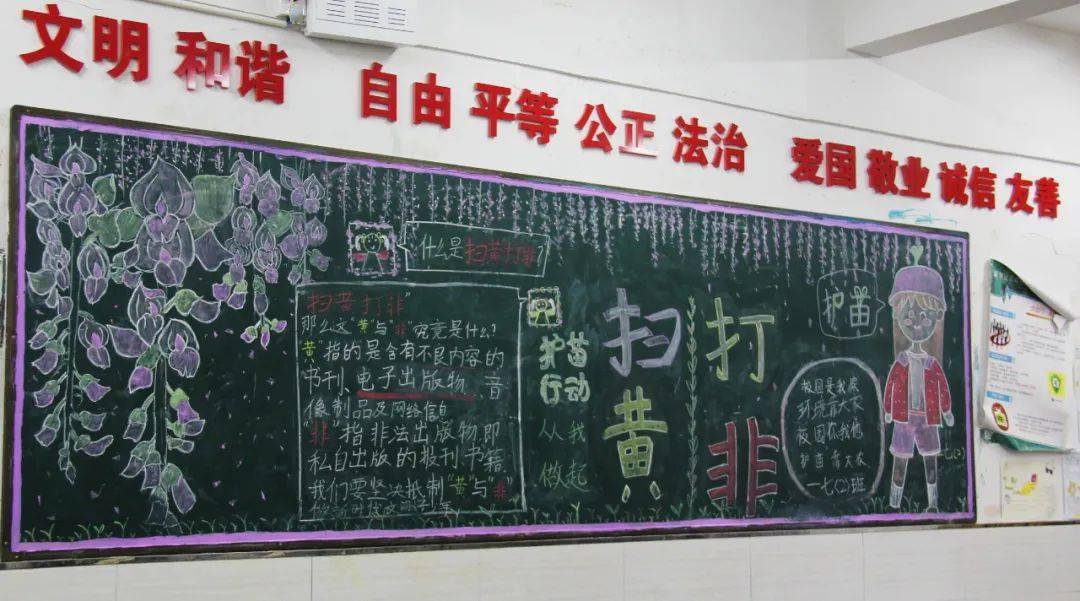 文明 和谐 自由 平等 公正 法治 爱国 敬业 诚信 友善
什么是扫黄打非
扫黄打非
那么这"黄"与"非"究竟是什么?
"黄"指的是含有不良内容的
书刊、电子出版物、音
像制品及网络信息
"非"指非法出版物,即
私自出版的报刊书籍
我们要坚决抵制"黄"与"非"
护苗
行动
从我
做起
扫黄
打非
护苗
校园是我家
环境靠大家
校园你我他
护苗靠大家
一七(2)班